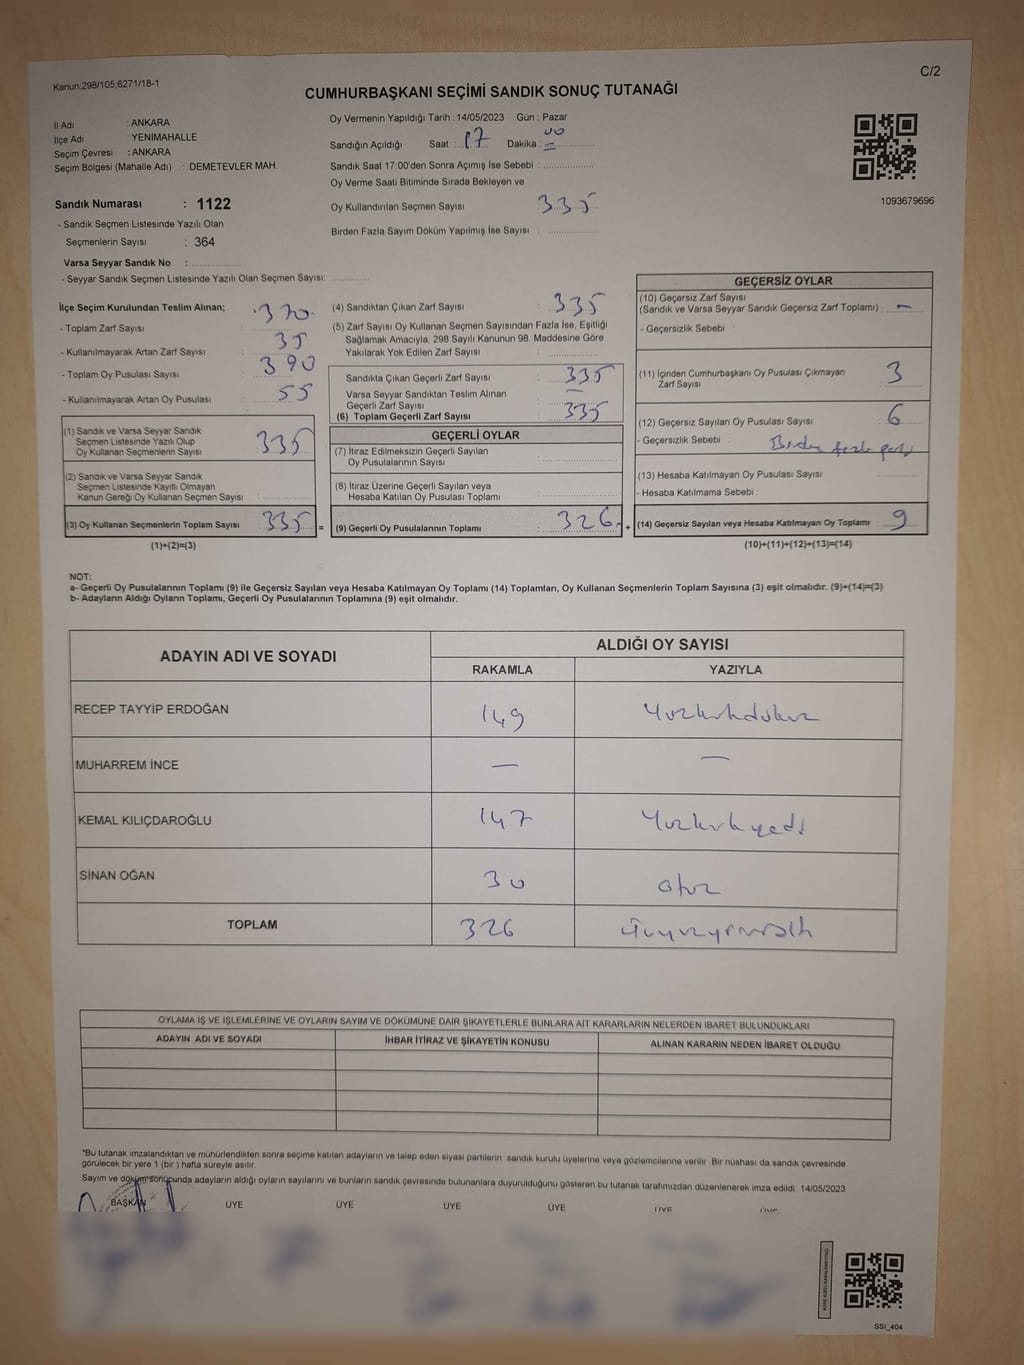 Kanun:298/105;6271/18-1
C/2
CUMHURBAŞKANI SEÇİMİ SANDIK SONUÇ TUTANAĞI
İl Adı : ANKARA
İlçe Adı : YENİMAHALLE
Seçim Çevresi : ANKARA
Seçim Bölgesi (Mahalle Adı) : DEMETEVLER MAH.
Sandık Numarası : 1122
- Sandık Seçmen Listesinde Yazılı Olan
Seçmenlerin Sayısı : 364
Varsa Seyyar Sandık No :
- Seyyar Sandık Seçmen Listesinde Yazılı Olan Seçmen Sayısı:
Oy Vermenin Yapıldığı Tarih :14/05/2023 Gün : Pazar
Sandığın Açıldığı Saat : 17 Dakika : 00
Sandık Saat 17:00'den Sonra Açımış İse Sebebi :
Oy Verme Saati Bitiminde Sırada Bekleyen ve
Oy Kullandırılan Seçmen Sayısı : 335
Birden Fazla Sayım Döküm Yapılmış İse Sayısı :
1093679696
İlçe Seçim Kurulundan Teslim Alınan;
- Toplam Zarf Sayısı : 370
- Kullanılmayarak Artan Zarf Sayısı : 35
- Toplam Oy Pusulası Sayısı : 390
- Kullanılmayarak Artan Oy Pusulası : 55
(1) Sandık ve Varsa Seyyar Sandık
Seçmen Listesinde Yazılı Olup
Oy Kullanan Seçmenlerin Sayısı : 335
(2) Sandık ve Varsa Seyyar Sandık
Seçmen Listesinde Kayıtlı Olmayan
Kanun Gereği Oy Kullanan Seçmen Sayısı :
(3) Oy Kullanan Seçmenlerin Toplam Sayısı : 335 =
(1)+(2)=(3)
(4) Sandıktan Çıkan Zarf Sayısı : 335
(5) Zarf Sayısı Oy Kullanan Seçmen Sayısından Fazla İse, Eşitliği
Sağlamak Amacıyla; 298 Sayılı Kanunun 98. Maddesine Göre
Yakılarak Yok Edilen Zarf Sayısı :
Sandıkta Çıkan Geçerli Zarf Sayısı : 335
Varsa Seyyar Sandıktan Teslim Alınan
Geçerli Zarf Sayısı : —
(6) Toplam Geçerli Zarf Sayısı : 335
GEÇERLİ OYLAR
(7) İtiraz Edilmeksizin Geçerli Sayılan
Oy Pusulalarının Sayısı :
(8) İtiraz Üzerine Geçerli Sayılan veya
Hesaba Katılan Oy Pusulası Toplamı :
(9) Geçerli Oy Pusulalarının Toplamı : 326 +
GEÇERSİZ OYLAR
(10) Geçersiz Zarf Sayısı
(Sandık ve Varsa Seyyar Sandık Geçersiz Zarf Toplamı) : —
- Geçersizlik Sebebi :
(11) İçinden Cumhurbaşkanı Oy Pusulası Çıkmayan
Zarf Sayısı : 3
(12) Geçersiz Sayılan Oy Pusulası Sayısı : 6
- Geçersizlik Sebebi : Birden fazla
(13) Hesaba Katılmayan Oy Pusulası Sayısı
- Hesaba Katılmama Sebebi :
(14) Geçersiz Sayılan veya Hesaba Katılmayan Oy Toplamı : 9
(10)+(11)+(12)+(13)=(14)
NOT:
a- Geçerli Oy Pusulalarının Toplamı (9) ile Geçersiz Sayılan veya Hesaba Katılmayan Oy Toplamı (14) Toplamları, Oy Kullanan Seçmenlerin Toplam Sayısına (3) eşit olmalıdır. (9)+(14)=(3)
b- Adayların Aldığı Oyların Toplamı, Geçerli Oy Pusulalarının Toplamına (9) eşit olmalıdır.
ADAYIN ADI VE SOYADI ALDIĞI OY SAYISI
RAKAMLA YAZIYLA
RECEP TAYYİP ERDOĞAN 149 Yüzkırkdokuz
MUHARREM İNCE — —
KEMAL KILIÇDAROĞLU 147 Yüzkırkyedi
SİNAN OĞAN 30 otuz
TOPLAM 326 üçyüzyirmialtı
OYLAMA İŞ VE İŞLEMLERİNE VE OYLARIN SAYIM VE DÖKÜMÜNE DAİR ŞİKAYETLERLE BUNLARA AİT KARARLARIN NELERDEN İBARET BULUNDUKLARI
ADAYIN ADI VE SOYADI İHBAR İTİRAZ VE ŞİKAYETİN KONUSU ALINAN KARARIN NEDEN İBARET OLDUĞU
*Bu tutanak imzalandıktan ve mühürlendikten sonra seçime katılan adayların ve talep eden siyasi partilerin sandık kurulu üyelerine veya gözlemcilerine verilir. Bir nüshası da sandık çevresinde
görülecek bir yere 1 (bir) hafta süreyle asılır.
Sayım ve döküm sonucunda adayların aldığı oyların sayılarını ve bunların sandık çevresinde bulunanlara duyurulduğunu gösteren bu tutanak tarafımızdan düzenlenerek imza edildi. 14/05/2023
BAŞKAN ÜYE ÜYE ÜYE ÜYE ÜYE ÜYE
SSI_404